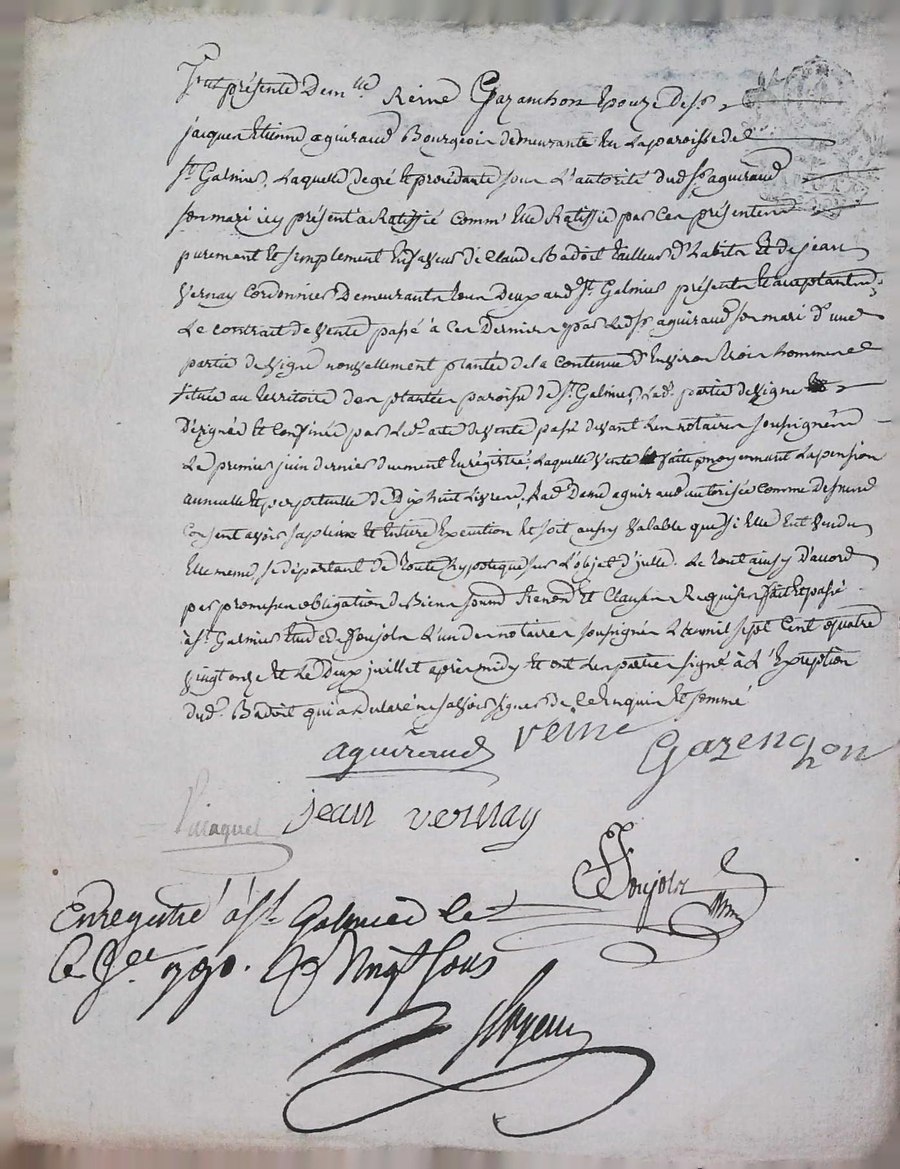 fut présente dem.lle Reine Gazanchon Epouze de s.r
jacques Etienne aguiraud Bourgeois demeurante en La paroisse de
s.t Galmier, Laquelle de gré et procédante sous L'autorité dud. s.r aguiraud
son mari icy présent a Ratiffié comm' Elle Ratiffie par Ces présentes
purement et simplement En faveur de Claude Badoit tailleur d'habits Et de jean
vernay Cordonnier Demeurants tous Deux aud. s.t Galmier présents et acceptants
Le contrait de vente passé à Ces Derniers par led. s.r aguiraud son mari d'une
partie de vigne nouvellement plantée de la Contenue d'Environ trois hommées
située au territoire des plantées paroisse de s.t Galmier, Lad. partie de vigne
Dézignée Et Confinée par Led. acte de vente passé devant Les notaires soussignés
Le premier juin dernier duement Enrégistré, Laquelle vente faite moyennant La pension
annuelle et perpetuelle de Dix huit Livres, Lad. Dame aguiraud autorisée comme dessus
Consent avoir sa pleine et Entiere Execution Et soit aussy valable que si Elle Eut vendu
Elle meme se départant de toute hypotèque sur L'objet d'icelle. Le tout ainsy d'accord
par promesses obligation de Biens soumis. Renon. et Clauses Requises fait Et passé
à s.t Galmier Etude de Soujols L'un des notaires soussignés L'an mil sept Cent quatre
vingt onze et Le deux juillet apres midy Et ont Les parties signé à L'Exception
dud. Badoit qui a déclaré ne savoir signer de ce Enquis Et sommé
aguiraud Reine Gazenchon
jean vernay
Soujols
Enregistré à s.t Galmier le
Vingt sous